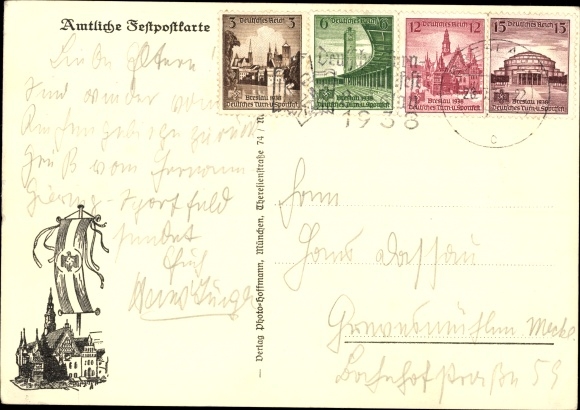 Amtliche Festpostkarte
3 Deutsches Reich 3
Breslau 1938
Deutsches Turn-u. Sportfest
6 Deutsches Reich 6
Breslau 1938
Deutsches Turn-u. Sportfest
12 Deutsches Reich 12
Breslau 1938
Deutsches Turn-u. Sportfest
15 Deutsches Reich 15
Breslau 1938
Deutsches Turn-u. Sportfest
1938
c
Liebe Eltern!
Sind wieder vom
zurück
Gruß vom Hermann
Göring-Sportfeld
sendet
Euch
Verlag Photo-Hoffmann, München, Theresienstraße 74
Herrn
Hans Dassau
Grevesmühlen Meckl.
Bahnhofstraße 59